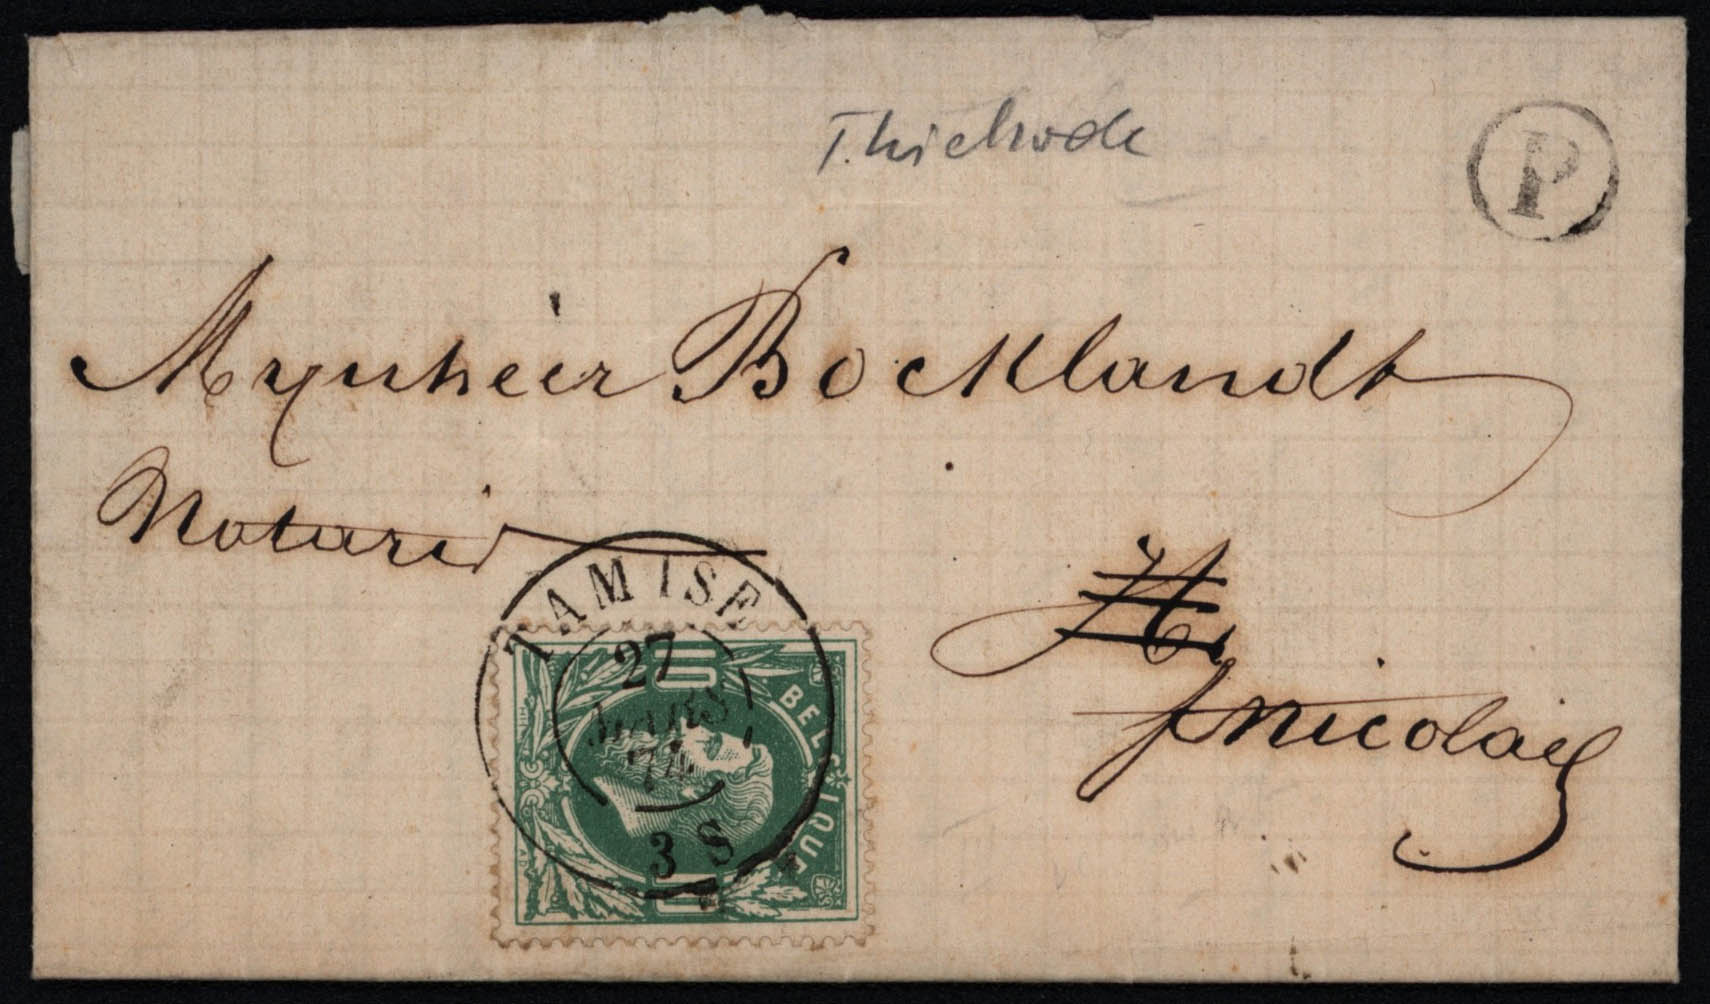 Thielrode
P
Mynheer Bocklandt
Notaris
St
nicolaes
TAMISE
27
MARS
74
3 S
BELGIQUE
10